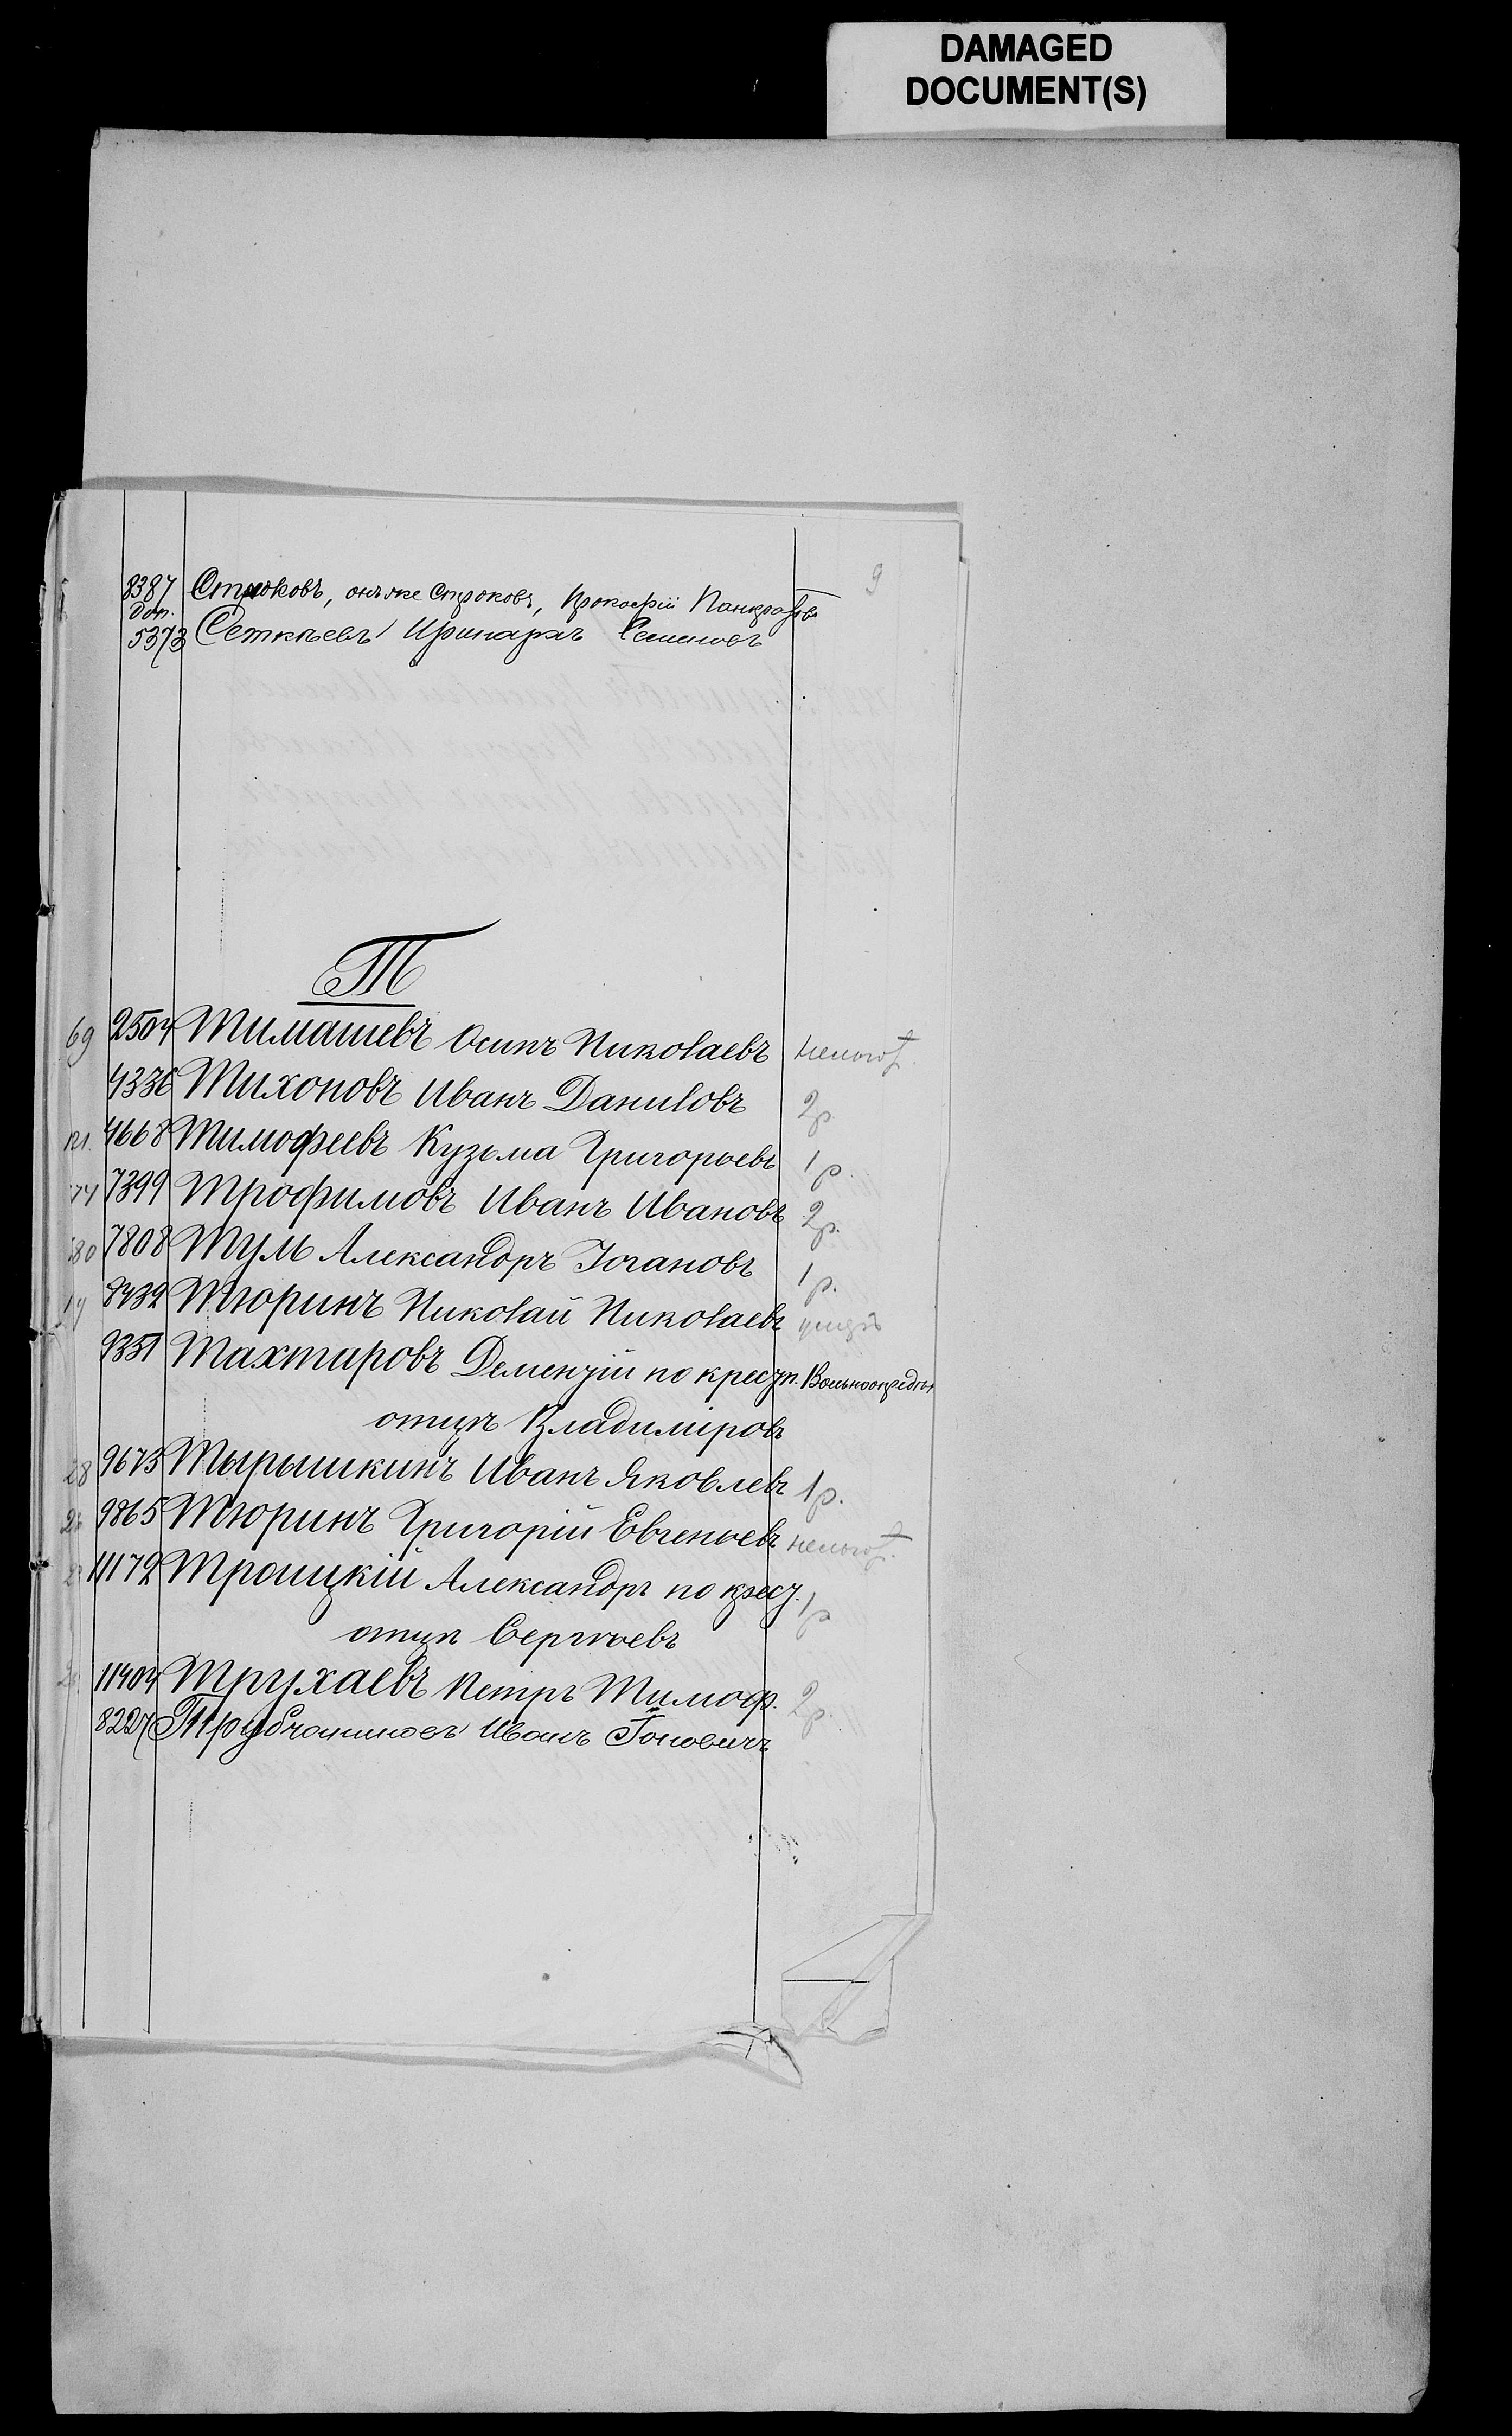 DAMAGED
DOCUMENT(S)
9
8387 Стрюковъ, онъ же Строковъ, Прокофій Панкратовъ
Доп.
5373 Сеткѣевъ Иринархъ Семеновъ
Т
69 2504 Тимашевъ Осипъ Николаевъ неспособ.
4336 Тихоновъ Иванъ Даниловъ 2р
121. 4668 Тимофеевъ Кузьма Григорьевъ 1р.
74 7399 Трофимовъ Иванъ Ивановъ 2р.
180 7808 Туль Александръ Іогановъ 1р.
14 8432 Тюринъ Николай Николаевъ
9351 Тахтаровъ Дементій по крестн. Вольноопредѣл
отцѣ Владиміровъ
28 9673 Тырышкинъ Иванъ Яковлевъ 1р.
9865 Тюринъ Григорій Евгеньевъ неспособ.
11172 Троицкій Александръ по крест. 1р
отцѣ Сергѣевъ
11404 Трухаевъ Петръ Тимоф. 2р.
8227 Трубчаниновъ Иванъ Іоновичъ